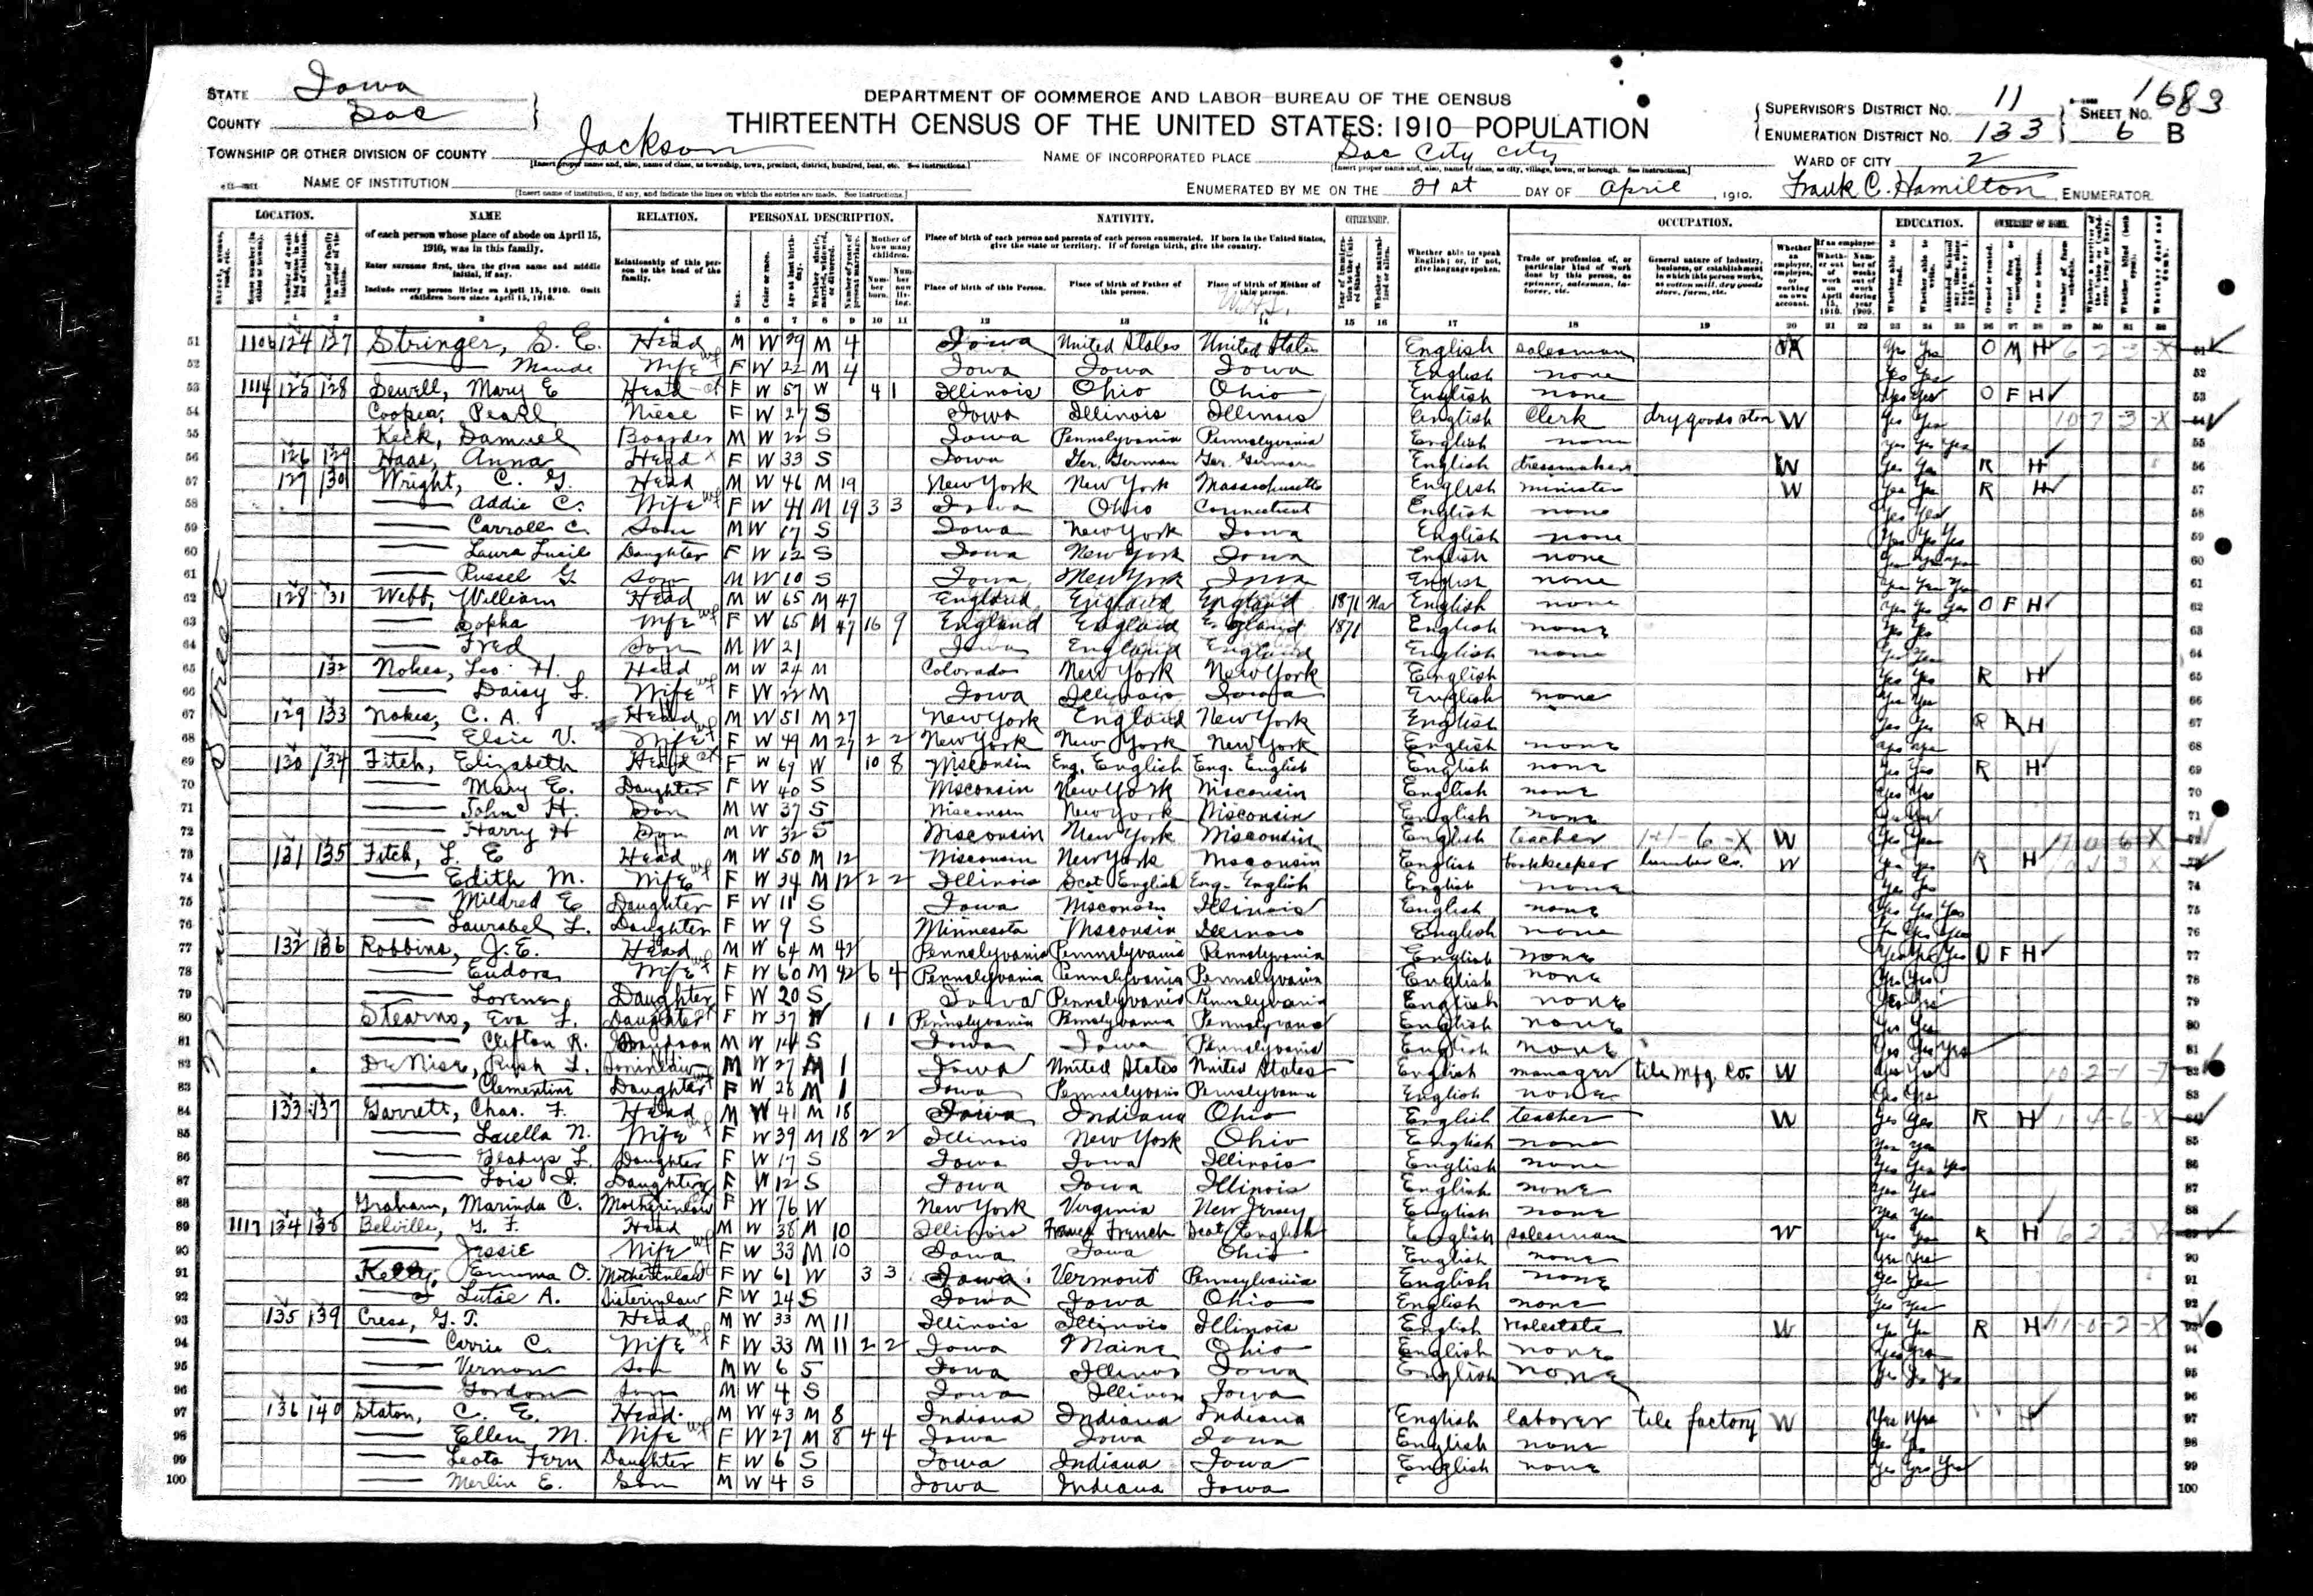 STATE Iowa
COUNTY Sac
TOWNSHIP OR OTHER DIVISION OF COUNTY Jackson
[Insert proper name and, also, name of class, as township, town, precinct, district, hundred, beat, etc. See instructions.]
NAME OF INSTITUTION
[Insert name of institution, if any, and indicate the lines on which the entries are made. See instructions.]
DEPARTMENT OF COMMERCE AND LABOR—BUREAU OF THE CENSUS
THIRTEENTH CENSUS OF THE UNITED STATES: 1910—POPULATION
NAME OF INCORPORATED PLACE Sac City city
[Insert proper name and, also, name of class, as city, village, town, or borough. See instructions.]
ENUMERATED BY ME ON THE 21st DAY OF April, 1910. Frank C. Hamilton, ENUMERATOR.
SUPERVISOR'S DISTRICT No. 11
ENUMERATION DISTRICT No. 133
SHEET No. 6 B
1683
WARD OF CITY 2
LOCATION. NAME RELATION. PERSONAL DESCRIPTION. NATIVITY. CITIZENSHIP. OCCUPATION. EDUCATION. OWNERSHIP OF HOME.
of each person whose place of abode on April 15, 1910, was in this family.
Enter surname first, then the given name and middle initial, if any.
Include every person living on April 15, 1910. Omit children born since April 15, 1910.
Relationship of this person to the head of the family.
Place of birth of each person and parents of each person enumerated. If born in the United States, give the state or territory. If of foreign birth, give the country.
Place of birth of this Person. Place of birth of Father of this person. Place of birth of Mother of this person.
Whether able to speak English; or, if not, give language spoken.
Main Street
51 1106 124 127 Stringer, S. E. Head M W 29 M 4 Iowa United States United States English salesman Yes Yes O M H
52 Maude Wife F W 22 M 4 Iowa Iowa Iowa English none Yes Yes
53 1114 125 128 Sewell, Mary E Head F W 57 W 4 1 Illinois Ohio Ohio English none Yes Yes O F H
54 Cooper, Pearl Niece F W 27 S Iowa Illinois Illinois English Clerk dry goods store W Yes Yes
55 Keck, Samuel Boarder M W 22 S Iowa Pennsylvania Pennsylvania English none Yes Yes Yes
56 126 129 Haas, Anna Head F W 33 S Iowa Ger. German Ger. German English dressmaker W Yes Yes R H
57 127 130 Wright, C. G. Head M W 46 M 19 New York New York Massachusetts English minister W Yes Yes R H
58 Addie C. Wife F W 41 M 19 3 3 Iowa Ohio Connecticut English none Yes Yes
59 Carroll C. Son M W 17 S Iowa New York Iowa English none Yes Yes Yes
60 Laura Lucile Daughter F W 12 S Iowa New York Iowa English none Yes Yes Yes
61 Russel G Son M W 10 S Iowa New York Iowa English none Yes Yes Yes
62 128 131 Webb, William Head M W 65 M 47 England England England 1871 Na English none Yes Yes Yes O F H
63 Sopha Wife F W 65 M 47 16 9 England England England 1871 English none Yes Yes
64 Fred Son M W 21 Iowa England England English none Yes Yes
65 132 Nokes, Leo. H. Head M W 24 M Colorado New York New York English Yes Yes R H
66 Daisy L. Wife F W 22 M Iowa Illinois Iowa English none Yes Yes
67 129 133 Nokes, C. A. Head M W 51 M 27 New York England New York English Yes Yes R H
68 Elsie V. Wife F W 49 M 27 2 2 New York New York New York English none Yes Yes
69 130 134 Fitch, Elizabeth Head F W 69 W 10 8 Wisconsin Eng. English Eng. English English none Yes Yes R H
70 Mary E. Daughter F W 40 S Wisconsin New York Wisconsin English none Yes Yes
71 John H. Son M W 37 S Wisconsin New York Wisconsin English none Yes Yes
72 Harry H Son M W 32 S Wisconsin New York Wisconsin English teacher W Yes Yes
73 131 135 Fitch, L. E Head M W 50 M 12 Wisconsin New York Wisconsin English bookkeeper lumber Co. W Yes Yes R H
74 Edith M. Wife F W 34 M 12 2 2 Illinois Scot English Eng. English English none Yes Yes
75 Mildred E Daughter F W 11 S Iowa Wisconsin Illinois English none Yes Yes Yes
76 Laurabel L. Daughter F W 9 S Minnesota Wisconsin Illinois English none Yes Yes Yes
77 132 136 Robbins, J. E. Head M W 64 M 42 Pennsylvania Pennsylvania Pennsylvania English none Yes Yes Yes O F H
78 Eudora Wife F W 60 M 42 6 4 Pennsylvania Pennsylvania Pennsylvania English none Yes Yes
79 Lorene Daughter F W 20 S Iowa Pennsylvania Pennsylvania English none Yes Yes
80 Stearns, Eva L. Daughter F W 37 W 1 1 Pennsylvania Pennsylvania Pennsylvania English none Yes Yes
81 Clifton R. Grandson M W 14 S Iowa Iowa Pennsylvania English none Yes Yes Yes
82 DeNise, Rush L. Soninlaw M W 27 M 1 Iowa United States United States English manager tile mfg. Co. W Yes Yes
83 Clementine Daughter F W 28 M 1 Iowa Pennsylvania Pennsylvania English none Yes Yes
84 133 137 Garrett, Chas. F. Head M W 41 M 18 Iowa Indiana Ohio English teacher W Yes Yes R H
85 Luella N. Wife F W 39 M 18 2 2 Illinois New York Ohio English none Yes Yes
86 Gladys L. Daughter F W 17 S Iowa Iowa Illinois English none Yes Yes Yes
87 Lois I. Daughter F W 12 S Iowa Iowa Illinois English none Yes Yes
88 Graham, Marinda C. Motherinlaw F W 76 W New York Virginia New Jersey English none Yes Yes
89 1117 134 138 Belville, G. F. Head M W 38 M 10 Illinois France French Scot English English salesman W Yes Yes R H
90 Jessie Wife F W 33 M 10 Iowa Iowa Ohio English none Yes Yes
91 Kelly, Emma O. Motherinlaw F W 61 W 3 3 Iowa Vermont Pennsylvania English none Yes Yes
92 Lutie A. Sisterinlaw F W 24 S Iowa Iowa Ohio English none Yes Yes
93 135 139 Cress, G. T. Head M W 33 M 11 Illinois Illinois Illinois English realestate W Yes Yes R H
94 Carrie C. Wife F W 33 M 11 2 2 Iowa Maine Ohio English none Yes Yes
95 Vernon Son M W 6 S Iowa Illinois Iowa English none Yes Yes Yes
96 Gordon Son M W 4 S Iowa Illinois Iowa
97 136 140 Staton, C. E. Head M W 43 M 8 Indiana Indiana Indiana English laborer tile factory W Yes Yes
98 Ellen M. Wife F W 27 M 8 4 4 Iowa Iowa Iowa English none Yes Yes
99 Leota Fern Daughter F W 6 S Iowa Indiana Iowa English none Yes Yes Yes
100 Merlin E. Son M W 4 S Iowa Indiana Iowa